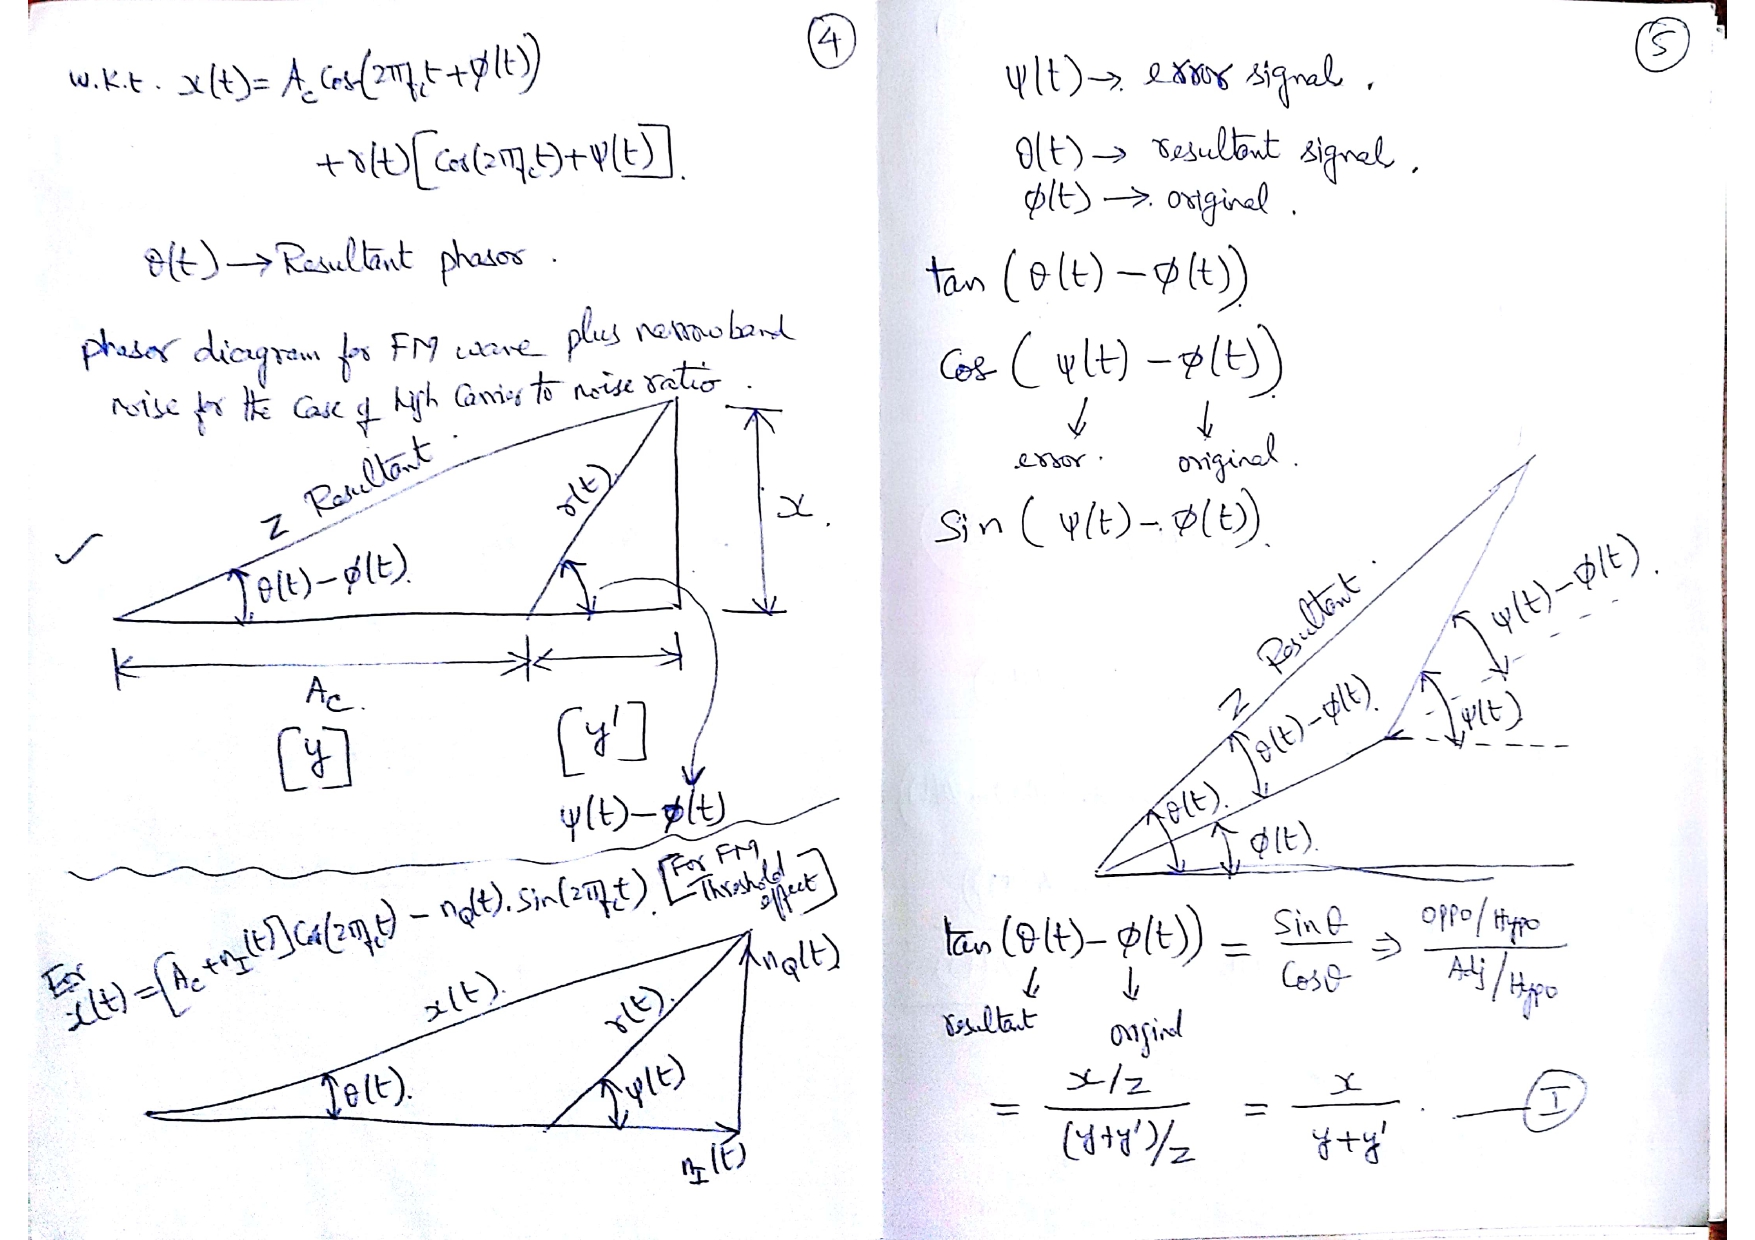 4
w.k.t. x(t) = A_c Cos(2πf_c t + φ(t))
+ r(t) [Cos(2πf_c t) + ψ(t)].
θ(t) → Resultant phasor.
phasor diagram for FM wave plus narrowband
noise for the case of high Carrier to noise ratio.
Z Resultant
r(t)
x.
θ(t) – φ(t).
A_c.
[y]
[y']
ψ(t) – φ(t)
For
x(t) = [A_c + n_I(t)] Cos(2πf_c t) – n_Q(t). Sin(2πf_c t). [For FM Threshold effect]
x(t).
r(t).
n_Q(t)
θ(t).
ψ(t)
n_I(t)
5
ψ(t) → error signal.
θ(t) → resultant signal.
φ(t) → original.
tan (θ(t) – φ(t))
Cos (ψ(t) – φ(t))
↓ ↓
error. original.
Sin (ψ(t) – φ(t)).
Z Resultant.
ψ(t) – φ(t).
θ(t) – φ(t).
ψ(t)
θ(t).
φ(t).
tan (θ(t) – φ(t)) = Sin θ / Cos θ ⇒ oppo/Hypo / Adj/Hypo
↓ ↓
resultant original
= x/z / (y+y')/z = x / y+y' . — I